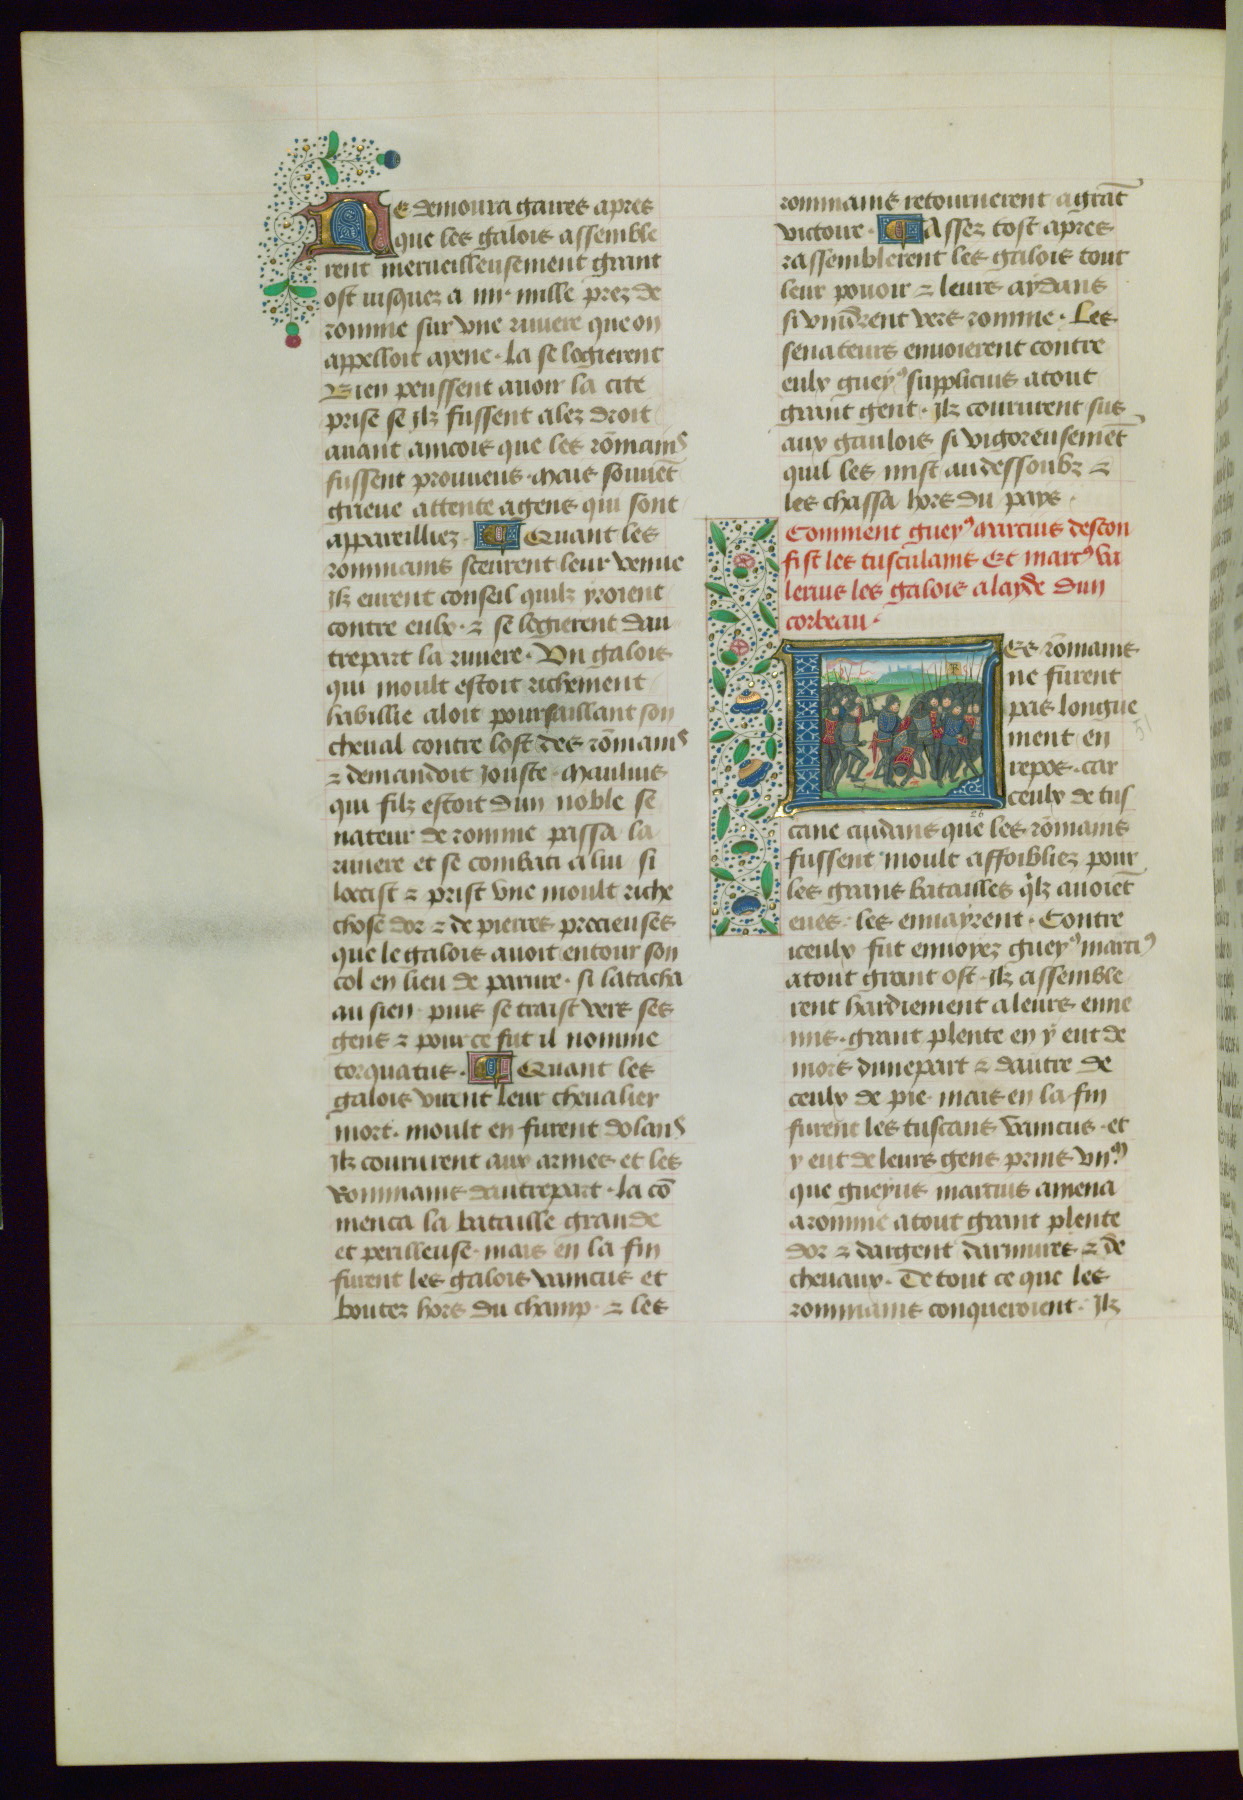 Ne demoura gaires apres
que les galois assemble
rent merueilleusement grant
ost iusques a iiii mille prez de
romme sur vne riuiere que on
appelloit ayene. La se logierent
Bien peussent auoir la cite
prise se jlz fussent alez droit
auant aincois que les rōmains
fussent prouueus. Mais souuēt
grieue attente a gens qui sont
appareilliez. Quant les
rommains sceurent leur venue
jlz eurent conseil quilz yroient
contre eulx. ⁊ se logierent dau
trepart la riuiere. Vn galois
qui moult estoit richement
habillie aloit poursaillant son
cheual contre lost des rōmains
⁊ demandoit jouste. Maulius
qui filz estoit dun noble se
nateur de romme passa la
riuiere et se combati a lui si
loccist ⁊ prist vne moult riche
chose dor ⁊ de pierres precieuses
que le galois auoit entour son
col en lieu de parure. si latacha
au sien puis se traist vers ses
gens ⁊ pour ce fut il nomme
torquatus. Quant les
galois virent leur cheualier
mort. moult en furent dolans
jlz coururent aux armes et les
Rommains dautrepart. La cō
menca la bataille grande
et perilleuse. mais en la fin
furent les galois vaincus et
boutez hors du champ. ⁊ les
rommains retournerent a grāt
victoire. Assez tost apres
rassemblerent les galois tout
leur pouoir ⁊ leurs aydans
si vindrent vers romme. Les
senateurs enuoierent contre
eulx gueyꝰ supplicius atout
grant gent. jlz coururent sus
aux gaulois si vigoreusemēt
quil les mist au dessoubz ⁊
les chassa hors du pays.
Comment gueyꝰ marcius descon
fist les tusculains Et marcꝰ va
lerius les galois a layde dun
corbeau.
Les rōmains
ne furent
pas longue
ment en
repos. car
ceulx de tus
26
51
cane cuidans que les rōmains
fussent moult affoibliez pour
les grans batailles q̄lz auoiēt
eues. les enuayrent. Contre
iceulx fut enuoyez gueyꝰ marciꝰ
atout grant ost. jlz assemble
rent hardiement a leurs enne
mis. grant plente en y eut de
mors dunepart ⁊ dautre de
ceulx de pie. mais en la fin
furent les tuscans vaincus. et
y eut de leurs gens prins
que gueyus marcius amena
a romme atout grant plente
dor ⁊ dargent darmures ⁊ de
cheuaux. De tout ce que les
rommains conqueroient. jlz